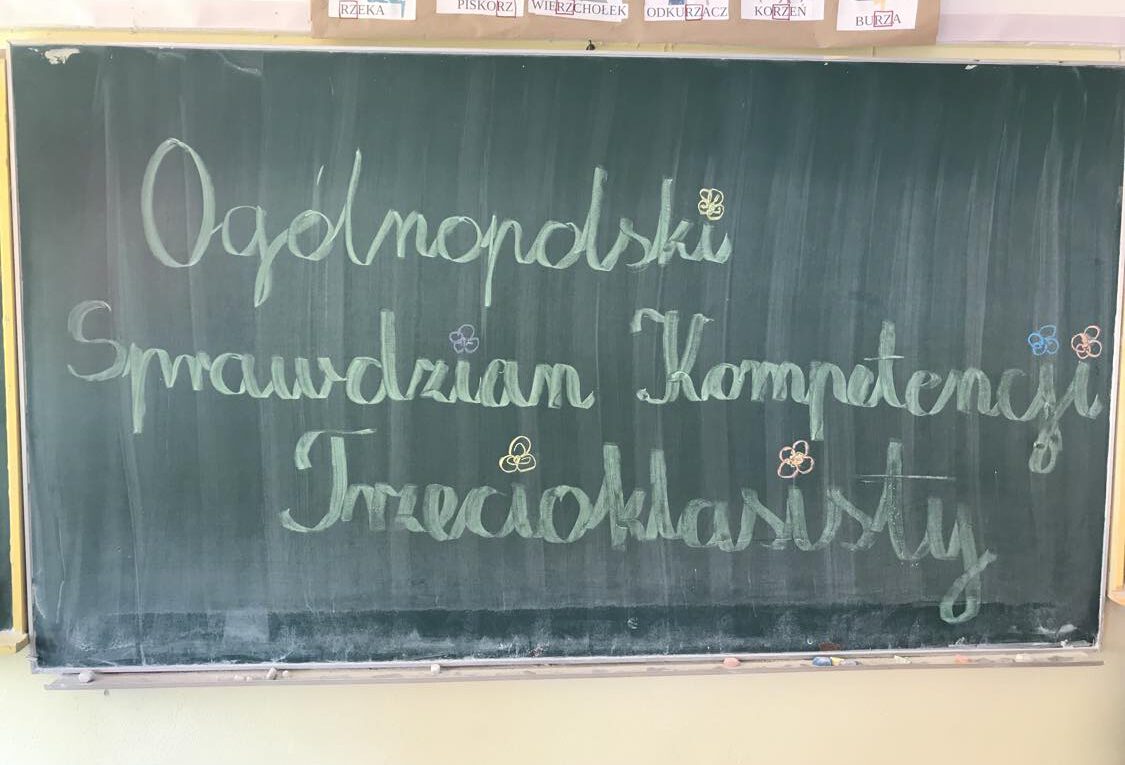 RZEKA PISKORZ WIERZCHOŁEK ODKURZACZ KORZEŃ BURZA
Ogólnopolski
Sprawdzian Kompetencji
Trzecioklasisty